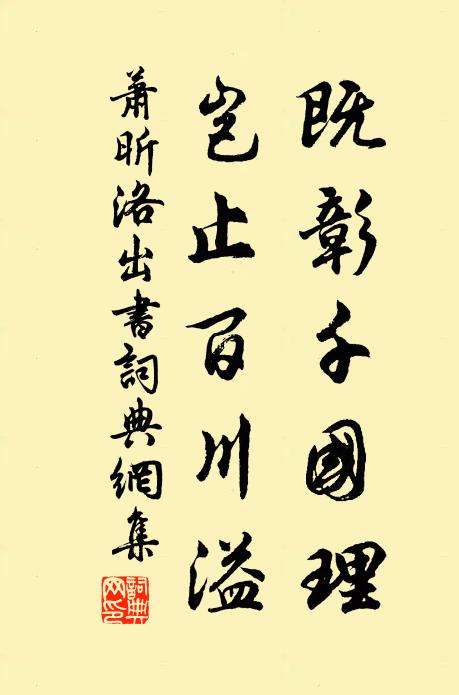 既彰千國理
豈止百川溢
蕭昕洛出書詞典網集
詞典
网印